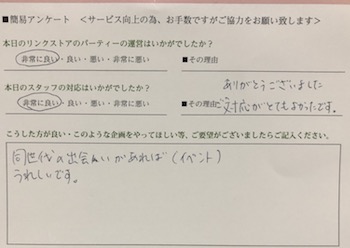 ■簡易アンケート　＜サービス向上の為、お手数ですがご協力をお願い致します＞
本日のリンクストアのパーティーの運営はいかがでしたか？
非常に良い・良い・悪い・非常に悪い　■その理由　ありがとうございました
本日のスタッフの対応はいかがでしたか？
非常に良い・良い・悪い・非常に悪い　■その理由　ご対応がとてもよかったです。
こうした方が良い・このような企画をやってほしい等、ご要望がございましたらご記入ください。
同世代の出会いがあれば（イベント）
うれしいです。